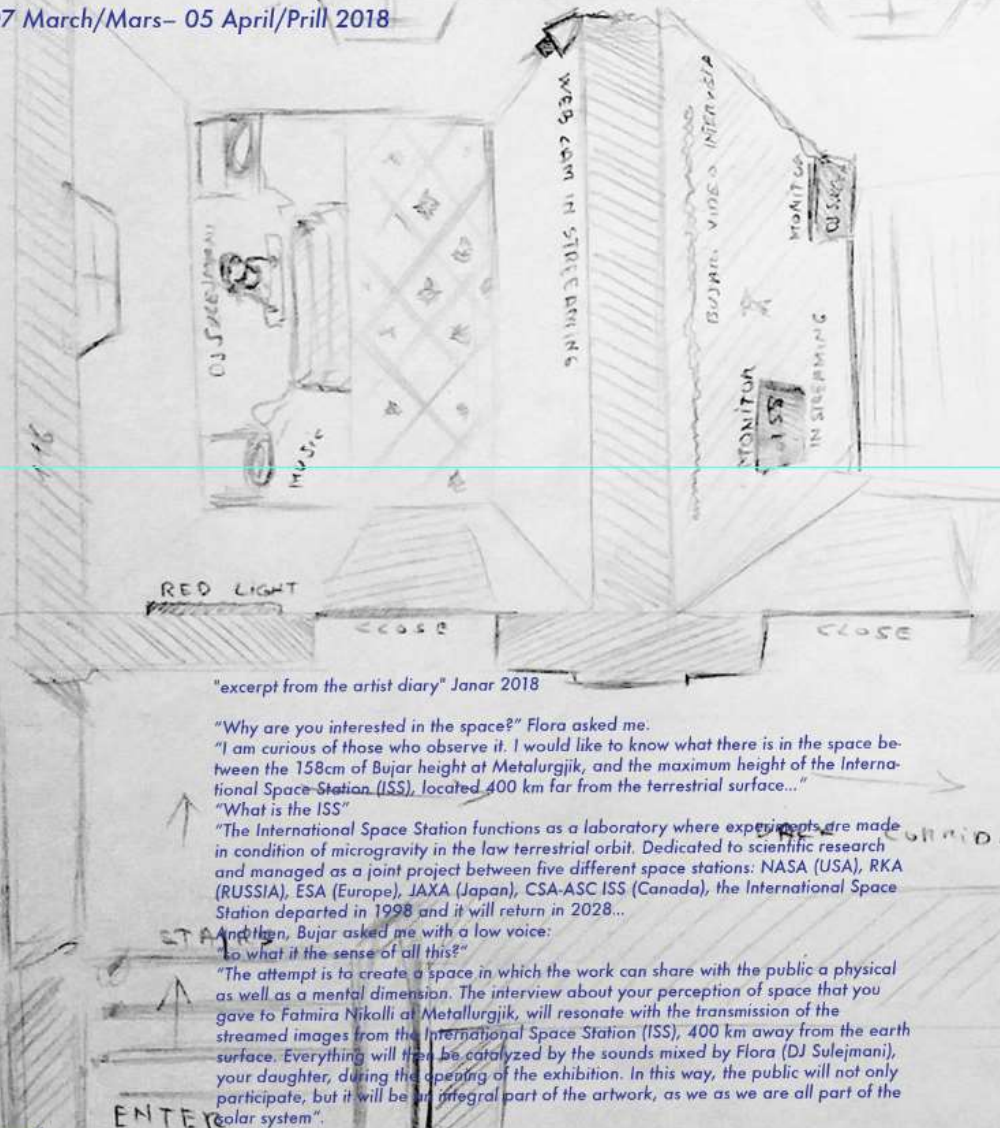 7 March/Mars– 05 April/Prill 2018
WEB CAM IN STREEAMING
BUJAR VIDEO
MONITOR
DJ SULEJMANI
MONITOR
ISS
IN STREAMING
MUSIC
RED LIGHT
CLOSE
CLOSE
"excerpt from the artist diary" Janar 2018
"Why are you interested in the space?" Flora asked me.
"I am curious of those who observe it. I would like to know what there is in the space be-
tween the 158cm of Bujar height at Metalurgjik, and the maximum height of the Interna-
tional Space Station (ISS), located 400 km far from the terrestrial surface..."
"What is the ISS"
"The International Space Station functions as a laboratory where experiments are made
in condition of microgravity in the law terrestrial orbit. Dedicated to scientific research
and managed as a joint project between five different space stations: NASA (USA), RKA
(RUSSIA), ESA (Europe), JAXA (Japan), CSA-ASC ISS (Canada), the International Space
Station departed in 1998 and it will return in 2028...
And then, Bujar asked me with a low voice:
"to what it the sense of all this?"
"The attempt is to create a space in which the work can share with the public a physical
as well as a mental dimension. The interview about your perception of space that you
gave to Fatmira Nikolli at Metallurgjik, will resonate with the transmission of the
streamed images from the International Space Station (ISS), 400 km away from the earth
surface. Everything will then be catalyzed by the sounds mixed by Flora (DJ Sulejmani),
your daughter, during the opening of the exhibition. In this way, the public will not only
participate, but it will be an integral part of the artwork, as we as we are all part of the
solar system".
STAIRS
ENTER